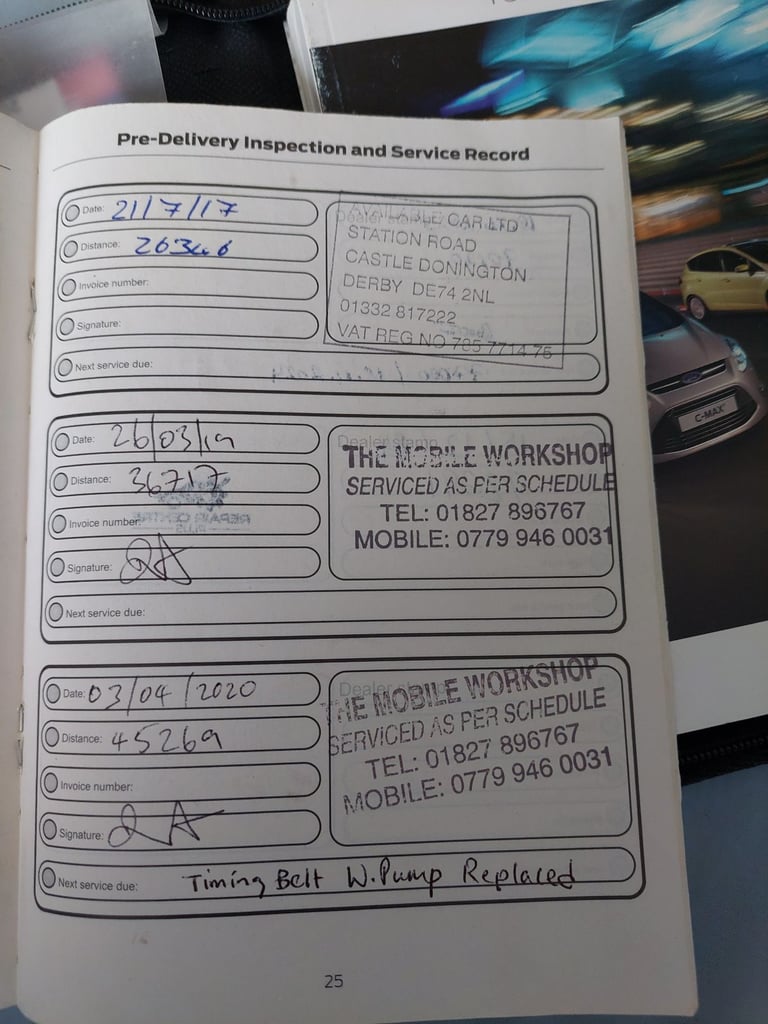 Pre-Delivery Inspection and Service Record
Date: 21/7/17
Distance: 26346
Invoice number:
Signature:
Next service due:
Dealer stamp
AVAILABLE CAR LTD
STATION ROAD
CASTLE DONINGTON
DERBY DE74 2NL
01332 817222
VAT REG NO 785 7714 75
Date: 26/03/19
Distance: 36717
Invoice number:
Signature:
Next service due:
Dealer stamp
THE MOBILE WORKSHOP
SERVICED AS PER SCHEDULE
TEL: 01827 896767
MOBILE: 0779 946 0031
Date: 03/04/2020
Distance: 45269
Invoice number:
Signature:
Next service due: Timing Belt W.Pump Replaced
Dealer stamp
THE MOBILE WORKSHOP
SERVICED AS PER SCHEDULE
TEL: 01827 896767
MOBILE: 0779 946 0031
25
C-MAX